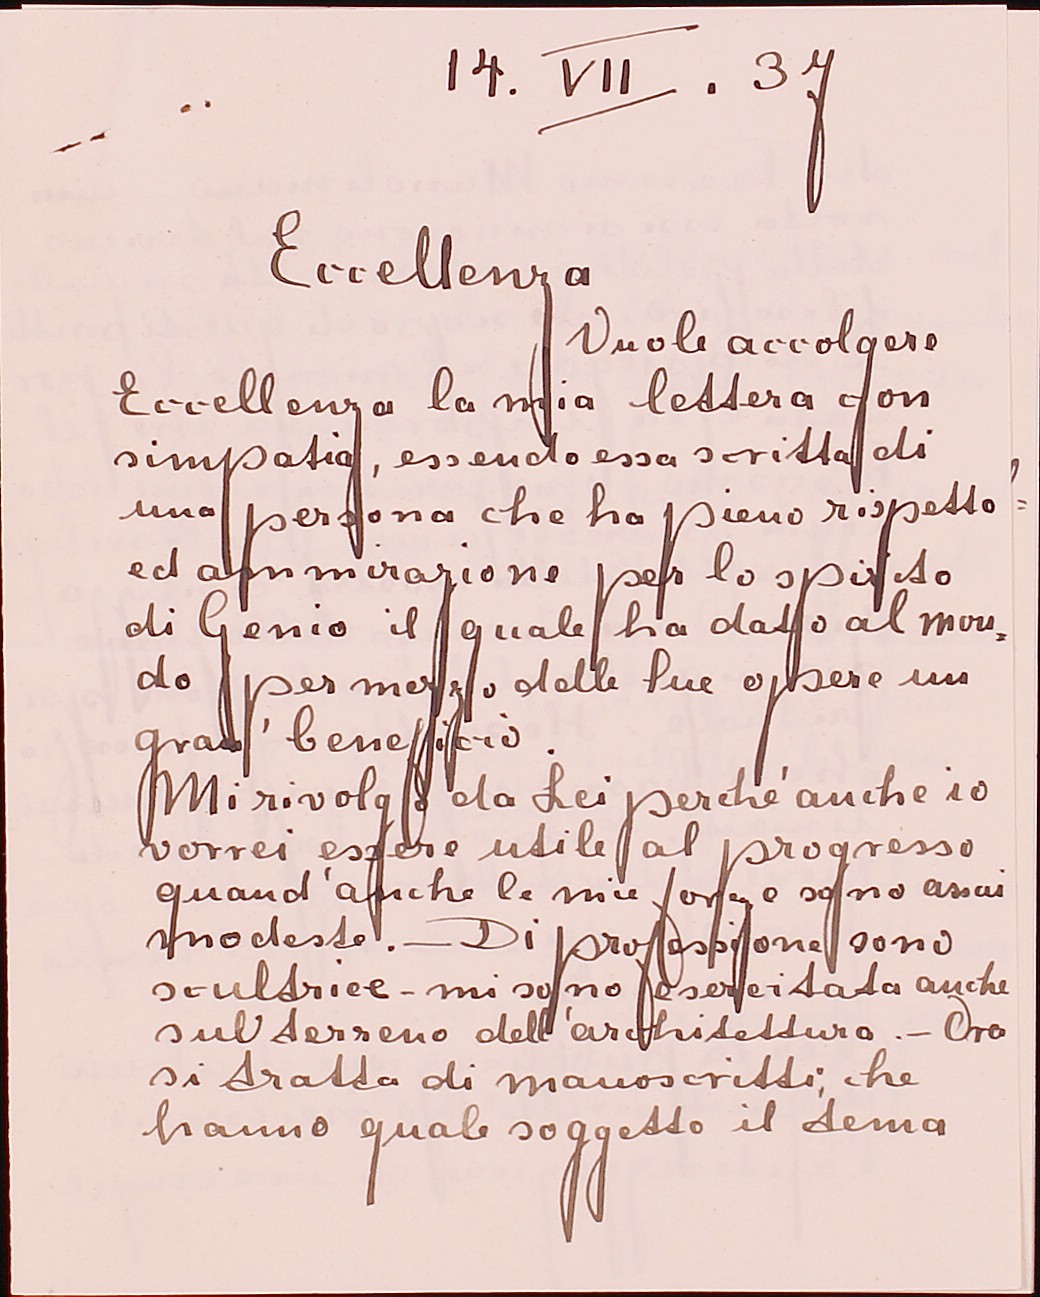 14. VII. 37
Eccellenza
Vuole accolgere
Eccellenza la mia lettera con
simpatia, essendo essa scritta di
una persona che ha pieno rispetto
ed ammirazione per lo spirito
di Genio il quale ha datto al mon=
do per mezzo delle Sue opsere un
gran' beneficio.
Mi rivolgo da Lei perché anche io
vorrei essere utile al progresso
quand'anche le mie forze sono assai
modeste. — Di professione sono
scultrice - mi sono esercitata anche
sul terreno dell'architettura. — Ora
si tratta di manoscritti, che
hanno quale soggetto il tema